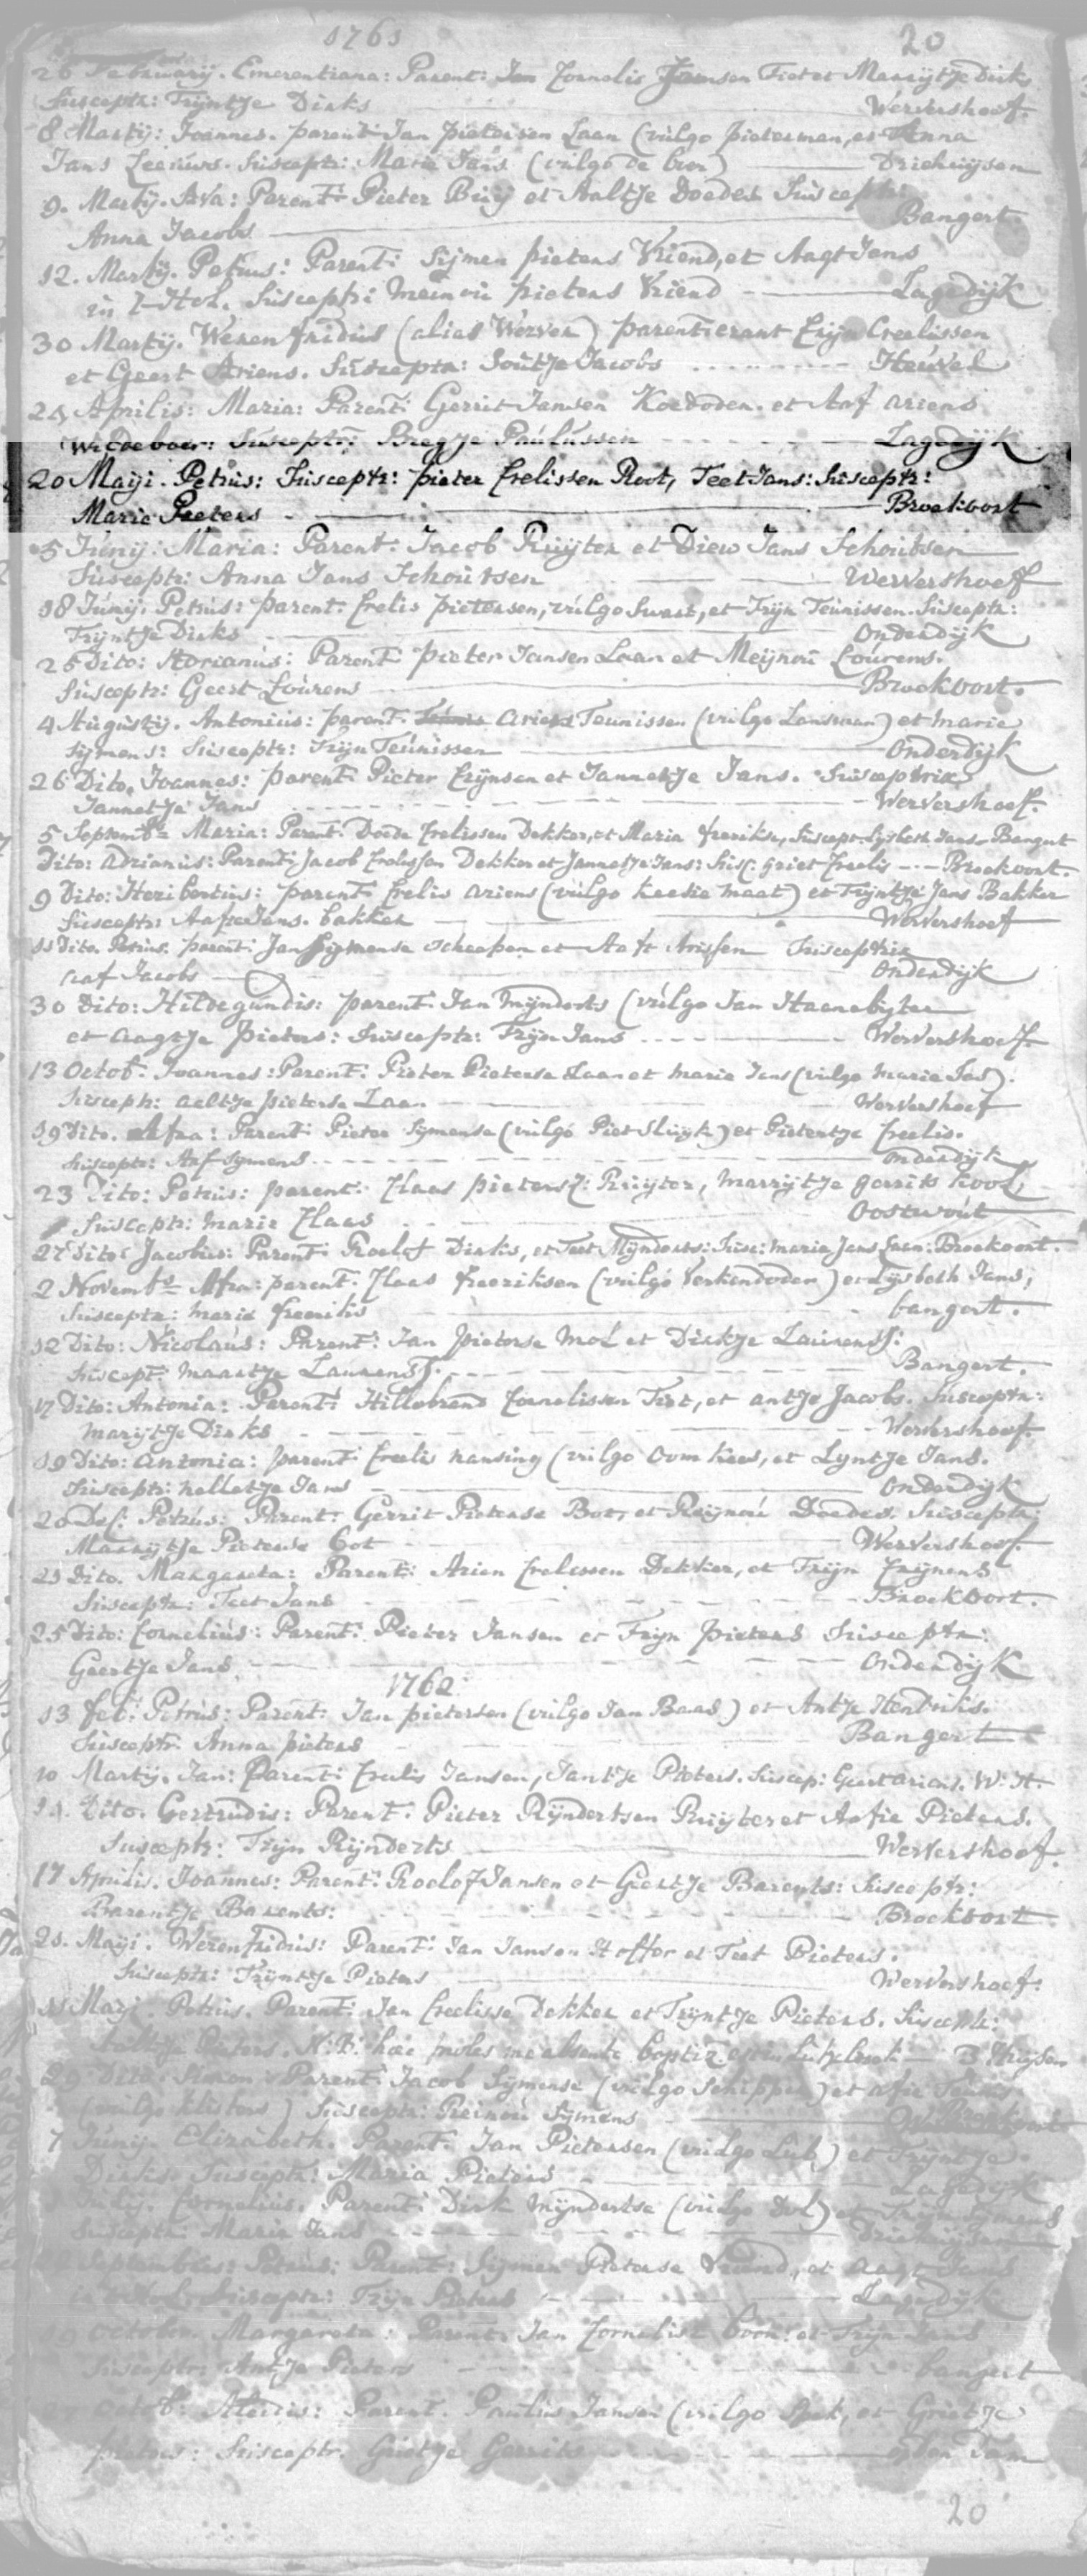 1761 20
26 Februarij. Emerentiana: Parent: Jan Cornelis Jansen Tiet et Marrijtje Dirks
Susceptr: Trijntje Dirks Wervershoef.
8 Martij: Joannes. parent Jan pietersen Laan (vulgo pieterman, et Anna
Jans Leeuws. Susceptr: Marie Jans (vulgo de boer) Driehuijsen
9. Martij. Parent: Pieter Buij et Aaltje Doedes Susceptr:
Anna Jacobs Bangert
12. Martij. Petrus: Parent: Sijmen pieters Vriend, et Aagt Jans
in 't Hol. Susceptr: Meinou pieters Vriend Lagedijk
30 Martij. Werenfridus (alias Werver) parent: erant Krijn Creelissen
et Geert Ariens. Susceptr: Soutje Jacobs Heuvel
Aprilis: Maria: Parent: Gerrit Jansen Koedoden. et Aaf ariens
Wildeboer: Susceptr: Bregtje Paulussen Lagedijk
20 Maji. Petrus: Susceptr: pieter Crelissen Root, Teet Jans: Susceptr:
Marie Pieters Broekoort
5 Junij: Maria: Parent: Jacob Ruijter et Diew Jans Schoutsen
Susceptr: Anna Jans Schoutsen Wervershoef
18 Junij. Petrus: parent: Crelis pietersen, vulgo Swart, et Trijn Teunissen. Susceptr:
Trijntje Dirks Onderdijk
25 Dito: Adrianus: Parent: pieter Jansen Laan et Meijnou Lourens.
Susceptr: Geert Lourens Broekoort.
4 Augustij. Antonius: parent: ariens Teunissen (vulgo Lansman) et marie
Sijmens: Susceptr: Trijn Teunissen Onderdijk
26 Dito. Joannes: parent: Pieter Crijnsen et Jannetje Jans. Susceptrix
Jannetje Jans Wervershoef.
5 Septemb: Maria: Parent: Doede Crelissen Dekker, et Maria freriks, Suscept. Lijsbeth Jans. Bangert
Dito: Adrianus: Parent: Jacob Crelissen Dekker et Jannetje Jans: Susc: Griet Creelis Broekoort.
9 Dito: Heribertus: parent: Crelis ariens (vulgo keesie maat) et Trijntje Jans Bakker
Susceptr: Aafje Jans. bakker Wervershoef
11 Dito. Petrus. parent: Jan Sijmense scheepen et Aaft Arisen Susceptrix
aaf Jacobs Onderdijk
30 Dito: Hildegundis: parent: Jan Mijnderts (vulgo Jan Haanebijter
et aagtje pieters: Susceptr: Trijn Jans Wervershoef.
13 Octob. Joannes: Parent: Pieter Pieterse Laan et marie Jans (vulgo marie Jas).
Susceptr: aeltje pieterse Laan Wervershoef
19 Dito. Afra: Parent: Pieter Sijmense (vulgo Piet Sluijk) et Pietertje Creelis.
Susceptr: Aaf Sijmens Onderdijk
23 Dito: Petrus: parent: Claas pietersz: Ruijter, Marrijtje gerrits kool,
Susceptr: marie Claas Oostwout
27 Dito: Jacobus: Parent: Roelof Dirkis, et Teet Mijnderts: Susc: maria Jans Laan: Broekoort.
2 Novemb: Afra: parent: Claas freeriksen (vulgo Verkendoder) et Lijsbeth Jans,
Susceptr: marie freeriks bangert.
12 Dito: Nicolaus: Parent: Jan pieterse Mol et Dirkje Laurenss:
Suscept: maartje Laurenss. Bangert.
17 Dito: Antonia: Parent: Hillebrand Cornelissen Tiet, et antje Jacobs. Susceptr:
Marijtje Dirks Wervershoef.
19 Dito: Antonia: parent: Creelis hansing (vulgo Oom Kees, et Lijntje Jans.
Susceptr: nelletje Jans Onderdijk
20 Dec: Petrus: Parent: Gerrit Pieterse Bot, et Reijnou Doedes. Susceptr:
Marrijtje Pieterse bot Wervershoef.
Dito. Margareta: Parent: Arien Crelissen Dekker, et Trijn Crijnens
Susceptr: Teet Jans Broekoort.
25 Dito: Cornelius: Parent: Pieter Jansen et Trijn pieters Susceptr:
Geertje Jans Onderdijk
1762
13 feb: Petrus: Parent: Jan pietersen (vulgo Jan Baas) et Antje Hendriks.
Susceptr: Anna pieters Bangert
10 Martij. Jan: Parent: Creelis Jansen, Jantje Pieters. Suscep: Geert ariens. W: H.
Dito. Gertrudis: Parent: Pieter Rijndertsen Ruijter et Aafie Pieters.
Susceptr: Trijn Rijnderts Wervershoef.
17 Aprilis. Joannes: Parent: Roelof Jansen et Geertje Barents: Susceptr:
Barentje Barents: Broekoort
Maji. Werenfridus: Parent: Jan Jansen Hoffer et Teet Pieters.
Susceptr: Trijntje Pieters Wervershoef.
Maji. Petrus. Parent: Jan Creelisse Dekker et Trijntje Pieters. Susceptr:
Pieters. N:B: haec proles me absente baptiz
29 Dito. Simon Parent: Jacob Sijmense (vulgo Schipper) et Afie
(vulgo ) Susceptr: Reinou Sijmens
7 Junij. Elizabeth. Parent: Jan Pietersen (vulgo Lub) et Trijntje
Dirkis Susceptr: Maria Pieters Lagedijk
Cornelius. Parent: Dirk Mijndertse (vulgo Dol) et Trijn Sijmens
Susceptr: Marie Jans Driehuijsen
Septembris: Petrus: Parent: Sijmen Pieterse Vriend, et Aagt Jans
Susceptr: Trijn Pieters Lagedijk
October. Margareta: Parent: Jan Cornelise born et Trijn Jans
Susceptr: Antje Pieters bangert
Octob: Parent: Paulus Jansen (vulgo et Grietje
pieters: Susceptr. Grietje Gerrits
20